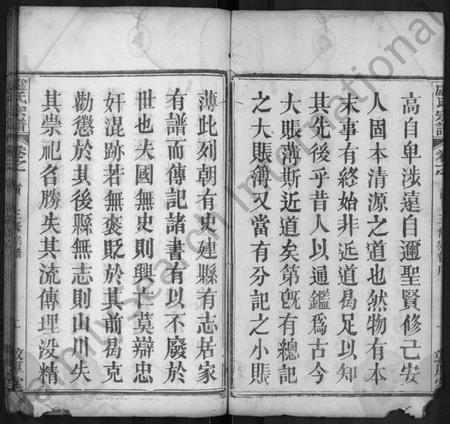 高自卑涉遠自邇聖賢修己安
人固本清源之道也然物有本
末事有終始非近道曷足以知
其先後乎昔人以通鑑為古今
大賬薄斯近道矣第旣有總記
之大賬簿又當有分記之小賬
薄此列朝有史建縣有志居家
有譜而傳記諸書有以不廢於
世也夫國無史則興亡莫辯忠
奸混跡若無褒貶於其前曷克
勸懲於其後縣無志則山川失
其崇祀名勝失其流傳埋没精
盧氏宗譜
卷之首
FamilySearch International